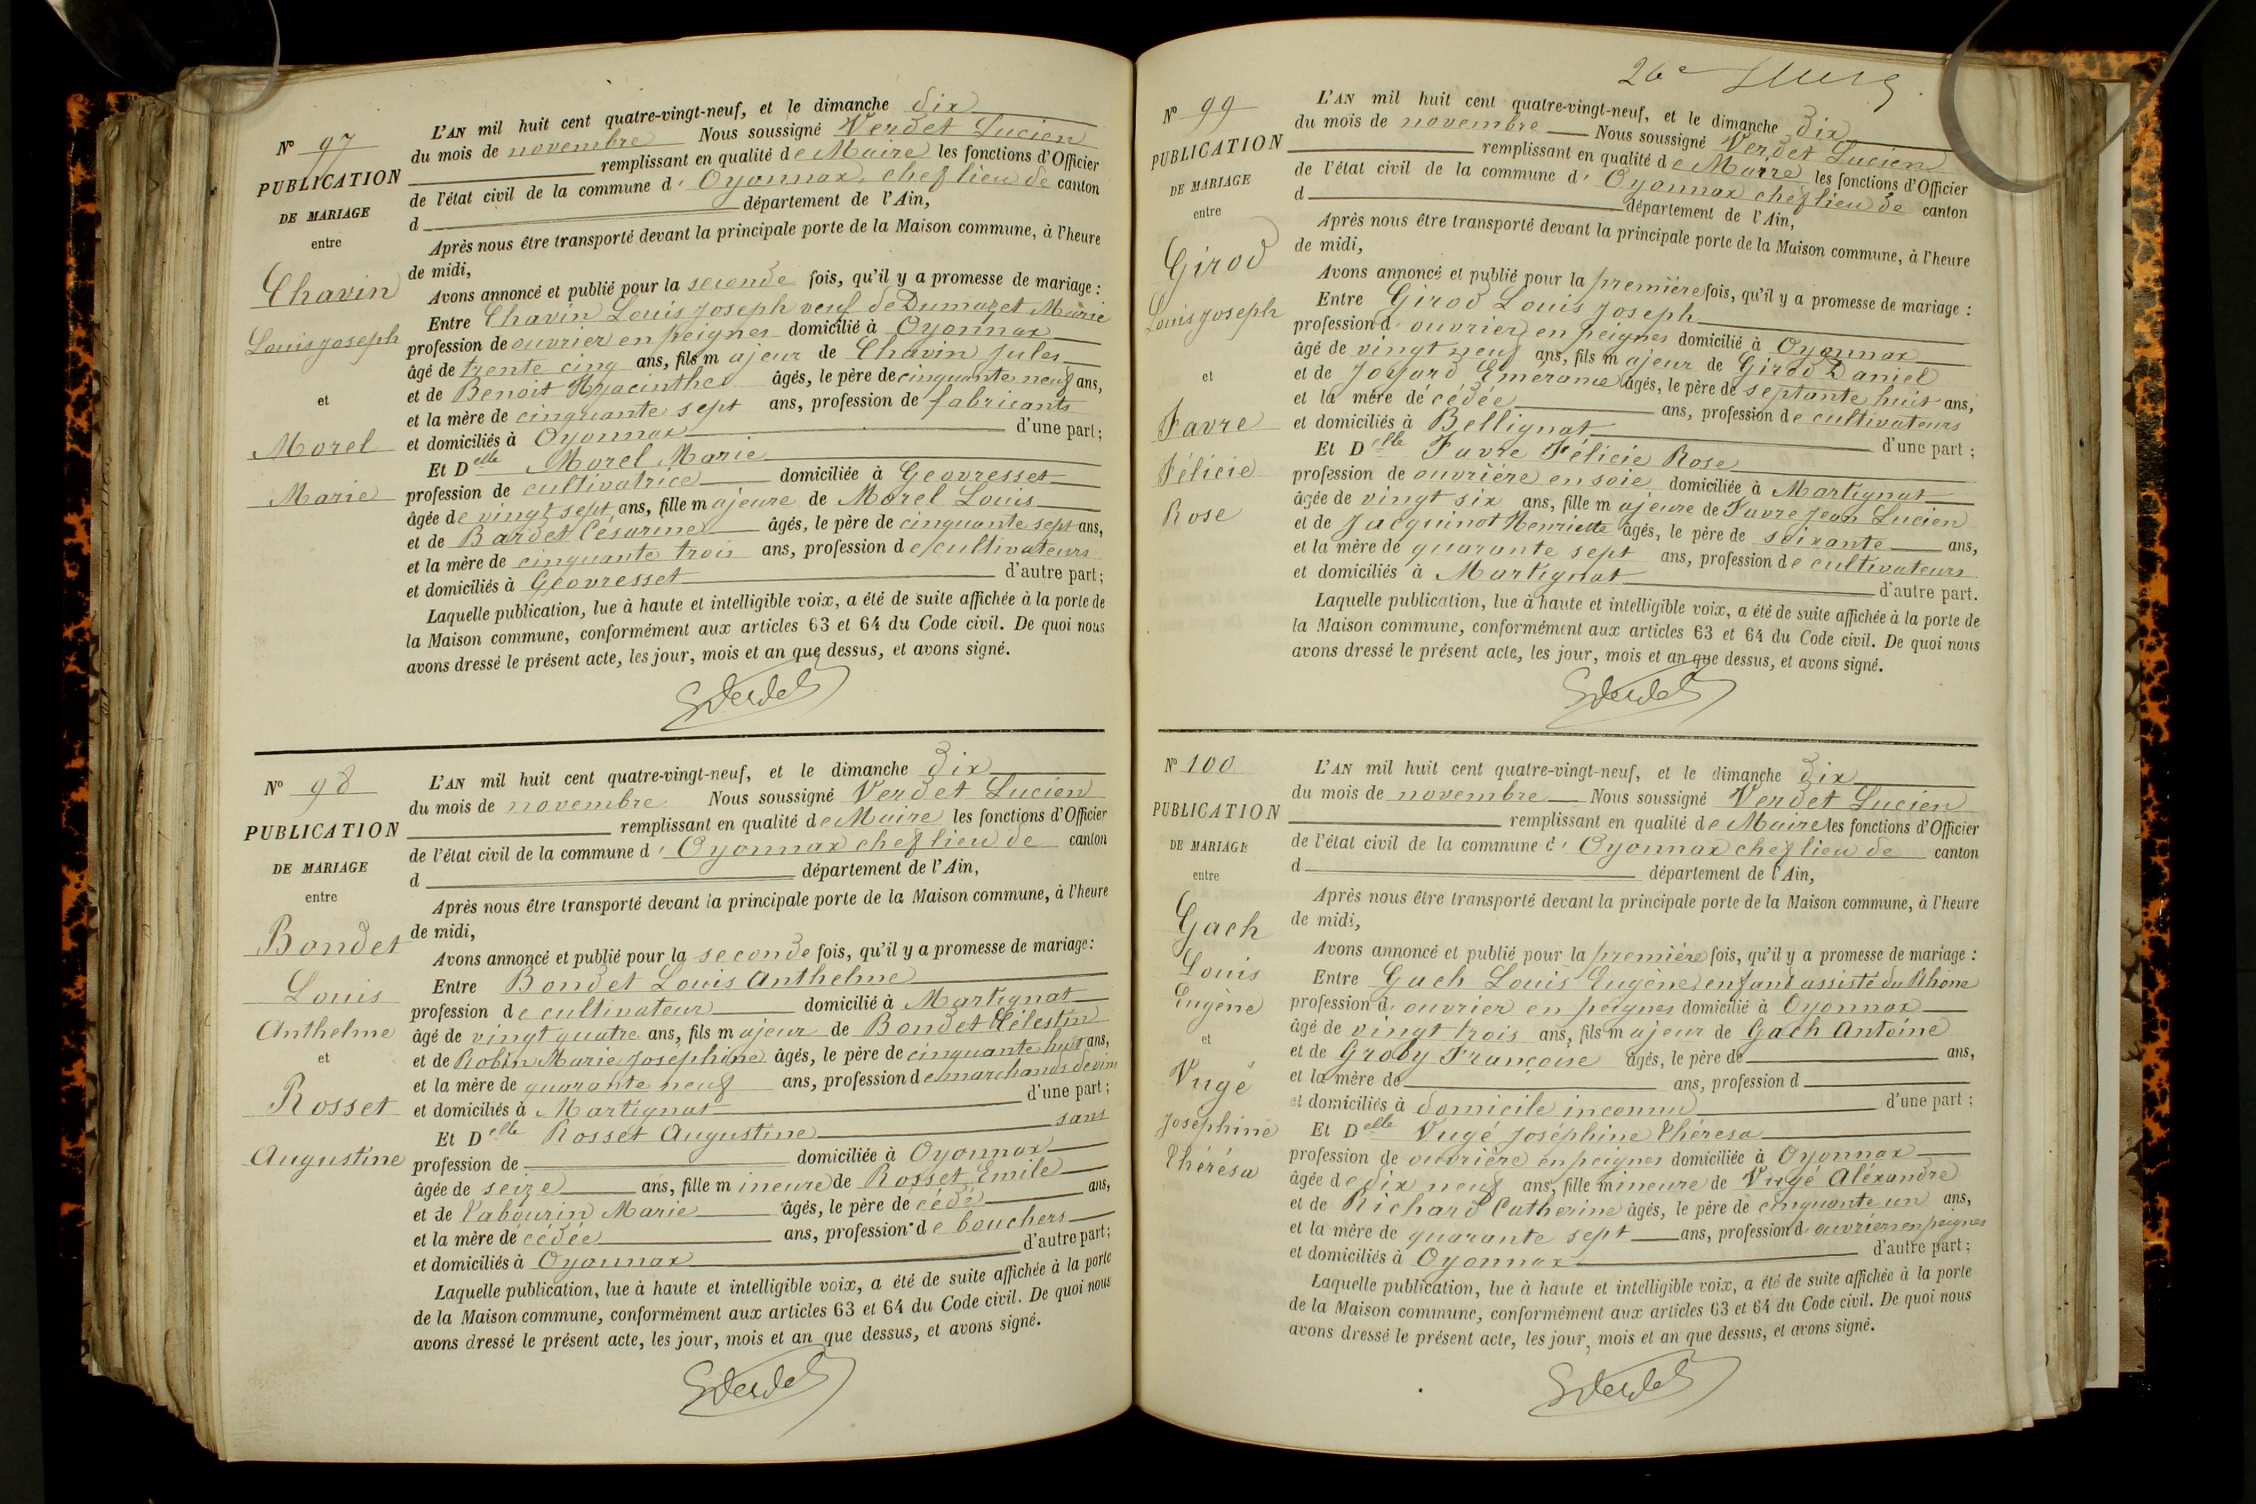 N° 97
PUBLICATION
DE MARIAGE
entre
Chavin
Louis Joseph
et
Morel
Marie
L'AN mil huit cent quatre-vingt-neuf, et le dimanche dix
du mois de novembre Nous soussigné Verdet Lucien
remplissant en qualité de Maire les fonctions d'Officier
de l'état civil de la commune d' Oyonnax, chef lieu de canton
d département de l'Ain,
Après nous être transporté devant la principale porte de la Maison commune, à l'heure
de midi,
Avons annoncé et publié pour la seconde fois, qu'il y a promesse de mariage :
Entre Chavin Louis Joseph veuf de Dumazet Marie
profession de ouvrier en peignes domicilié à Oyonnax
âgé de trente cinq ans, fils majeur de Chavin Jules
et de Benoit Hyacinthe âgés, le père de cinquante neuf ans,
et la mère de cinquante sept ans, profession de fabricants
et domiciliés à Oyonnax d'une part ;
Et Delle Morel Marie
profession de cultivatrice domiciliée à Geovresset
âgée de vingt sept ans, fille majeure de Morel Louis
et de Bardet Césarine âgés, le père de cinquante sept ans,
et la mère de cinquante trois ans, profession de cultivateurs
et domiciliés à Geovresset d'autre part ;
Laquelle publication, lue à haute et intelligible voix, a été de suite affichée à la porte de
la Maison commune, conformément aux articles 63 et 64 du Code civil. De quoi nous
avons dressé le présent acte, les jour, mois et an que dessus, et avons signé.
Verdet
N° 98
PUBLICATION
DE MARIAGE
entre
Bondet
Louis
Anthelme
et
Rosset
Augustine
L'AN mil huit cent quatre-vingt-neuf, et le dimanche dix
du mois de novembre Nous soussigné Verdet Lucien
remplissant en qualité de Maire les fonctions d'Officier
de l'état civil de la commune d' Oyonnax chef lieu de canton
d département de l'Ain,
Après nous être transporté devant la principale porte de la Maison commune, à l'heure
de midi,
Avons annoncé et publié pour la seconde fois, qu'il y a promesse de mariage :
Entre Bondet Louis Anthelme
profession de cultivateur domicilié à Martignat
âgé de vingt quatre ans, fils majeur de Bondet Célestin
et de Robin Marie Josephine âgés, le père de cinquante huit ans,
et la mère de quarante neuf ans, profession de marchands de vin
et domiciliés à Martignat d'une part ;
Et Delle Rosset Augustine sans
profession de domiciliée à Oyonnax
âgée de seize ans, fille mineure de Rosset Emile
et de Tabourin Marie âgés, le père décédé ans,
et la mère décédée ans, profession de bouchers
et domiciliés à Oyonnax d'autre part ;
Laquelle publication, lue à haute et intelligible voix, a été de suite affichée à la porte
de la Maison commune, conformément aux articles 63 et 64 du Code civil. De quoi nous
avons dressé le présent acte, les jour, mois et an que dessus, et avons signé.
Verdet
26e
N° 99
PUBLICATION
DE MARIAGE
entre
Girod
Louis Joseph
et
Favre
Félicie
Rose
L'AN mil huit cent quatre-vingt-neuf, et le dimanche dix
du mois de novembre Nous soussigné Verdet Lucien
remplissant en qualité de Maire les fonctions d'Officier
de l'état civil de la commune d' Oyonnax chef lieu de canton
d département de l'Ain,
Après nous être transporté devant la principale porte de la Maison commune, à l'heure
de midi,
Avons annoncé et publié pour la première fois, qu'il y a promesse de mariage :
Entre Girod Louis Joseph
profession d' ouvrier en peignes domicilié à Oyonnax
âgé de vingt neuf ans, fils majeur de Girod Daniel
et de Joyard Emerance âgés, le père de septante huit ans,
et la mère décédée ans, profession de cultivateurs
et domiciliés à Bellignat d'une part ;
Et Delle Favre Félicie Rose
profession de ouvrière en soie domiciliée à Martignat
âgée de vingt six ans, fille majeure de Favre Jean Lucien
et de Jacquinot Henriette âgés, le père de soixante ans,
et la mère de quarante sept ans, profession de cultivateurs
et domiciliés à Martignat d'autre part.
Laquelle publication, lue à haute et intelligible voix, a été de suite affichée à la porte de
la Maison commune, conformément aux articles 63 et 64 du Code civil. De quoi nous
avons dressé le présent acte, les jour, mois et an que dessus, et avons signé.
Verdet
N° 100
PUBLICATION
DE MARIAGE
entre
Gach
Louis
Eugène
et
Vugé
Joséphine
Thérésa
L'AN mil huit cent quatre-vingt-neuf, et le dimanche dix
du mois de novembre Nous soussigné Verdet Lucien
remplissant en qualité de Maire les fonctions d'Officier
de l'état civil de la commune d' Oyonnax chef lieu de canton
d département de l'Ain,
Après nous être transporté devant la principale porte de la Maison commune, à l'heure
de midi,
Avons annoncé et publié pour la première fois, qu'il y a promesse de mariage :
Entre Gach Louis Eugène enfant assisté du Rhône
profession d' ouvrier en peignes domicilié à Oyonnax
âgé de vingt trois ans, fils majeur de Gach Antoine
et de Groby Françoise âgés, le père de ans,
et la mère de ans, profession d
et domiciliés à domicile inconnu d'une part ;
Et Delle Vugé Joséphine Thérésa
profession de ouvrière en peignes domiciliée à Oyonnax
âgée de dix neuf ans, fille mineure de Vugé Aléxandre
et de Richard Catherine âgés, le père de cinquante un ans,
et la mère de quarante sept ans, profession d ouvriers en peignes
et domiciliés à Oyonnax d'autre part ;
Laquelle publication, lue à haute et intelligible voix, a été de suite affichée à la porte
de la Maison commune, conformément aux articles 63 et 64 du Code civil. De quoi nous
avons dressé le présent acte, les jour, mois et an que dessus, et avons signé.
Verdet